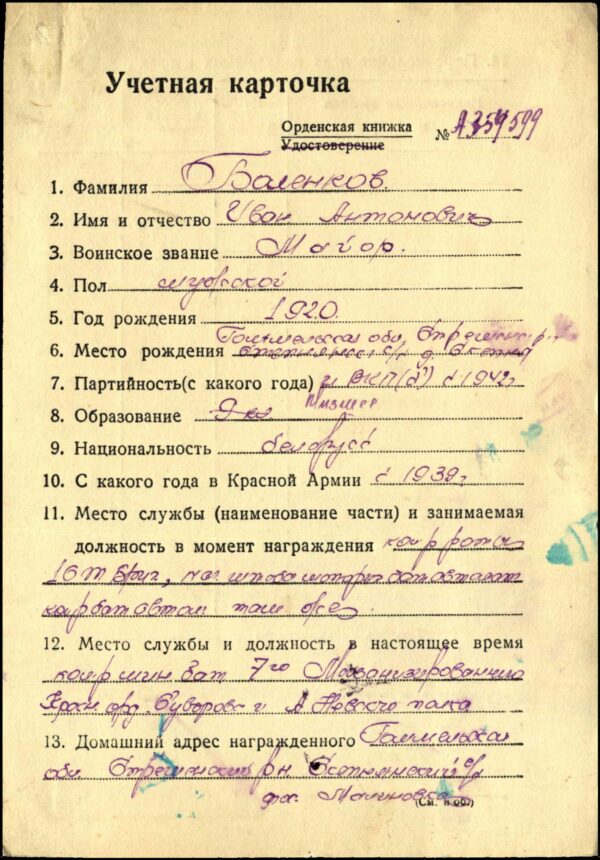 Учетная карточка
Орденская книжка
Удостоверение
№ А354599
1. Фамилия Баленков.
2. Имя и отчество Иван Антонович
3. Воинское звание Майор.
4. Пол мужской
5. Год рождения 1920.
Гомельская обл,
6. Место рождения
7. Партийность(с какого года) ВКП(б) с 1942г
Низшее
8. Образование
9. Национальность белорусс
10. С какого года в Красной Армии с 1939г
11. Место службы (наименование части) и занимаемая
должность в момент награждения ком роты
16
12. Место службы и должность в настоящее время
ком мин. бат 7го Механизированного
Красн орд. Суворова и А Невского полка
13. Домашний адрес награжденного Гомельская
обл Стрешинский рн
Малиновка
(См. н об.)